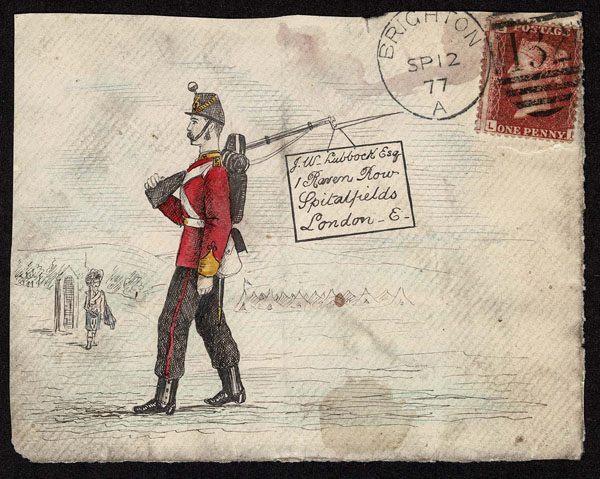 BRIGHTON
SP 12
77
A
POSTAGE
ONE PENNY
J. W. Lubbock Esq
1 Raven Row
Spitalfields
London _ E _